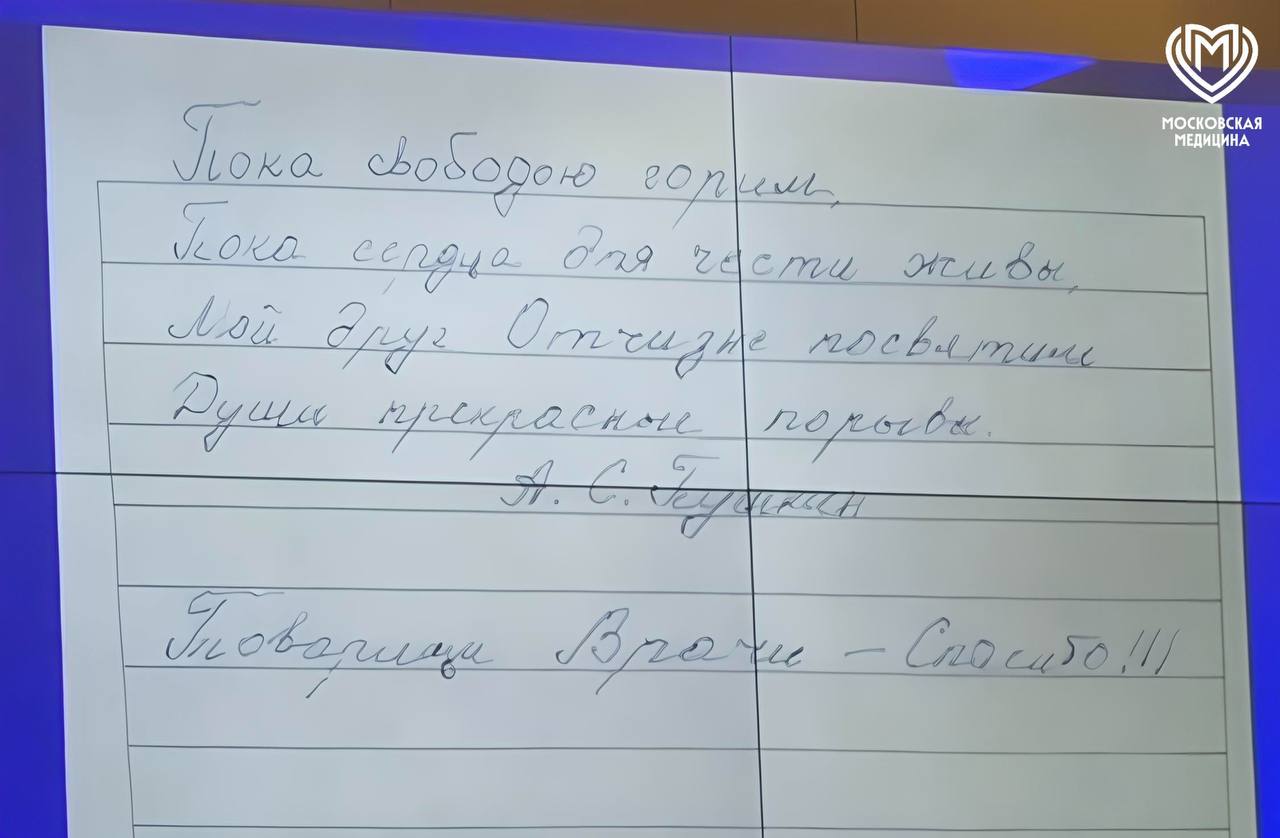 МОСКОВСКАЯ
МЕДИЦИНА
Пока свободою горим,
Пока сердца для чести живы,
Мой друг Отчизне посвятим
Души прекрасные порывы.
А. С. Пушкин
Товарищи Врачи – Спасибо!!!